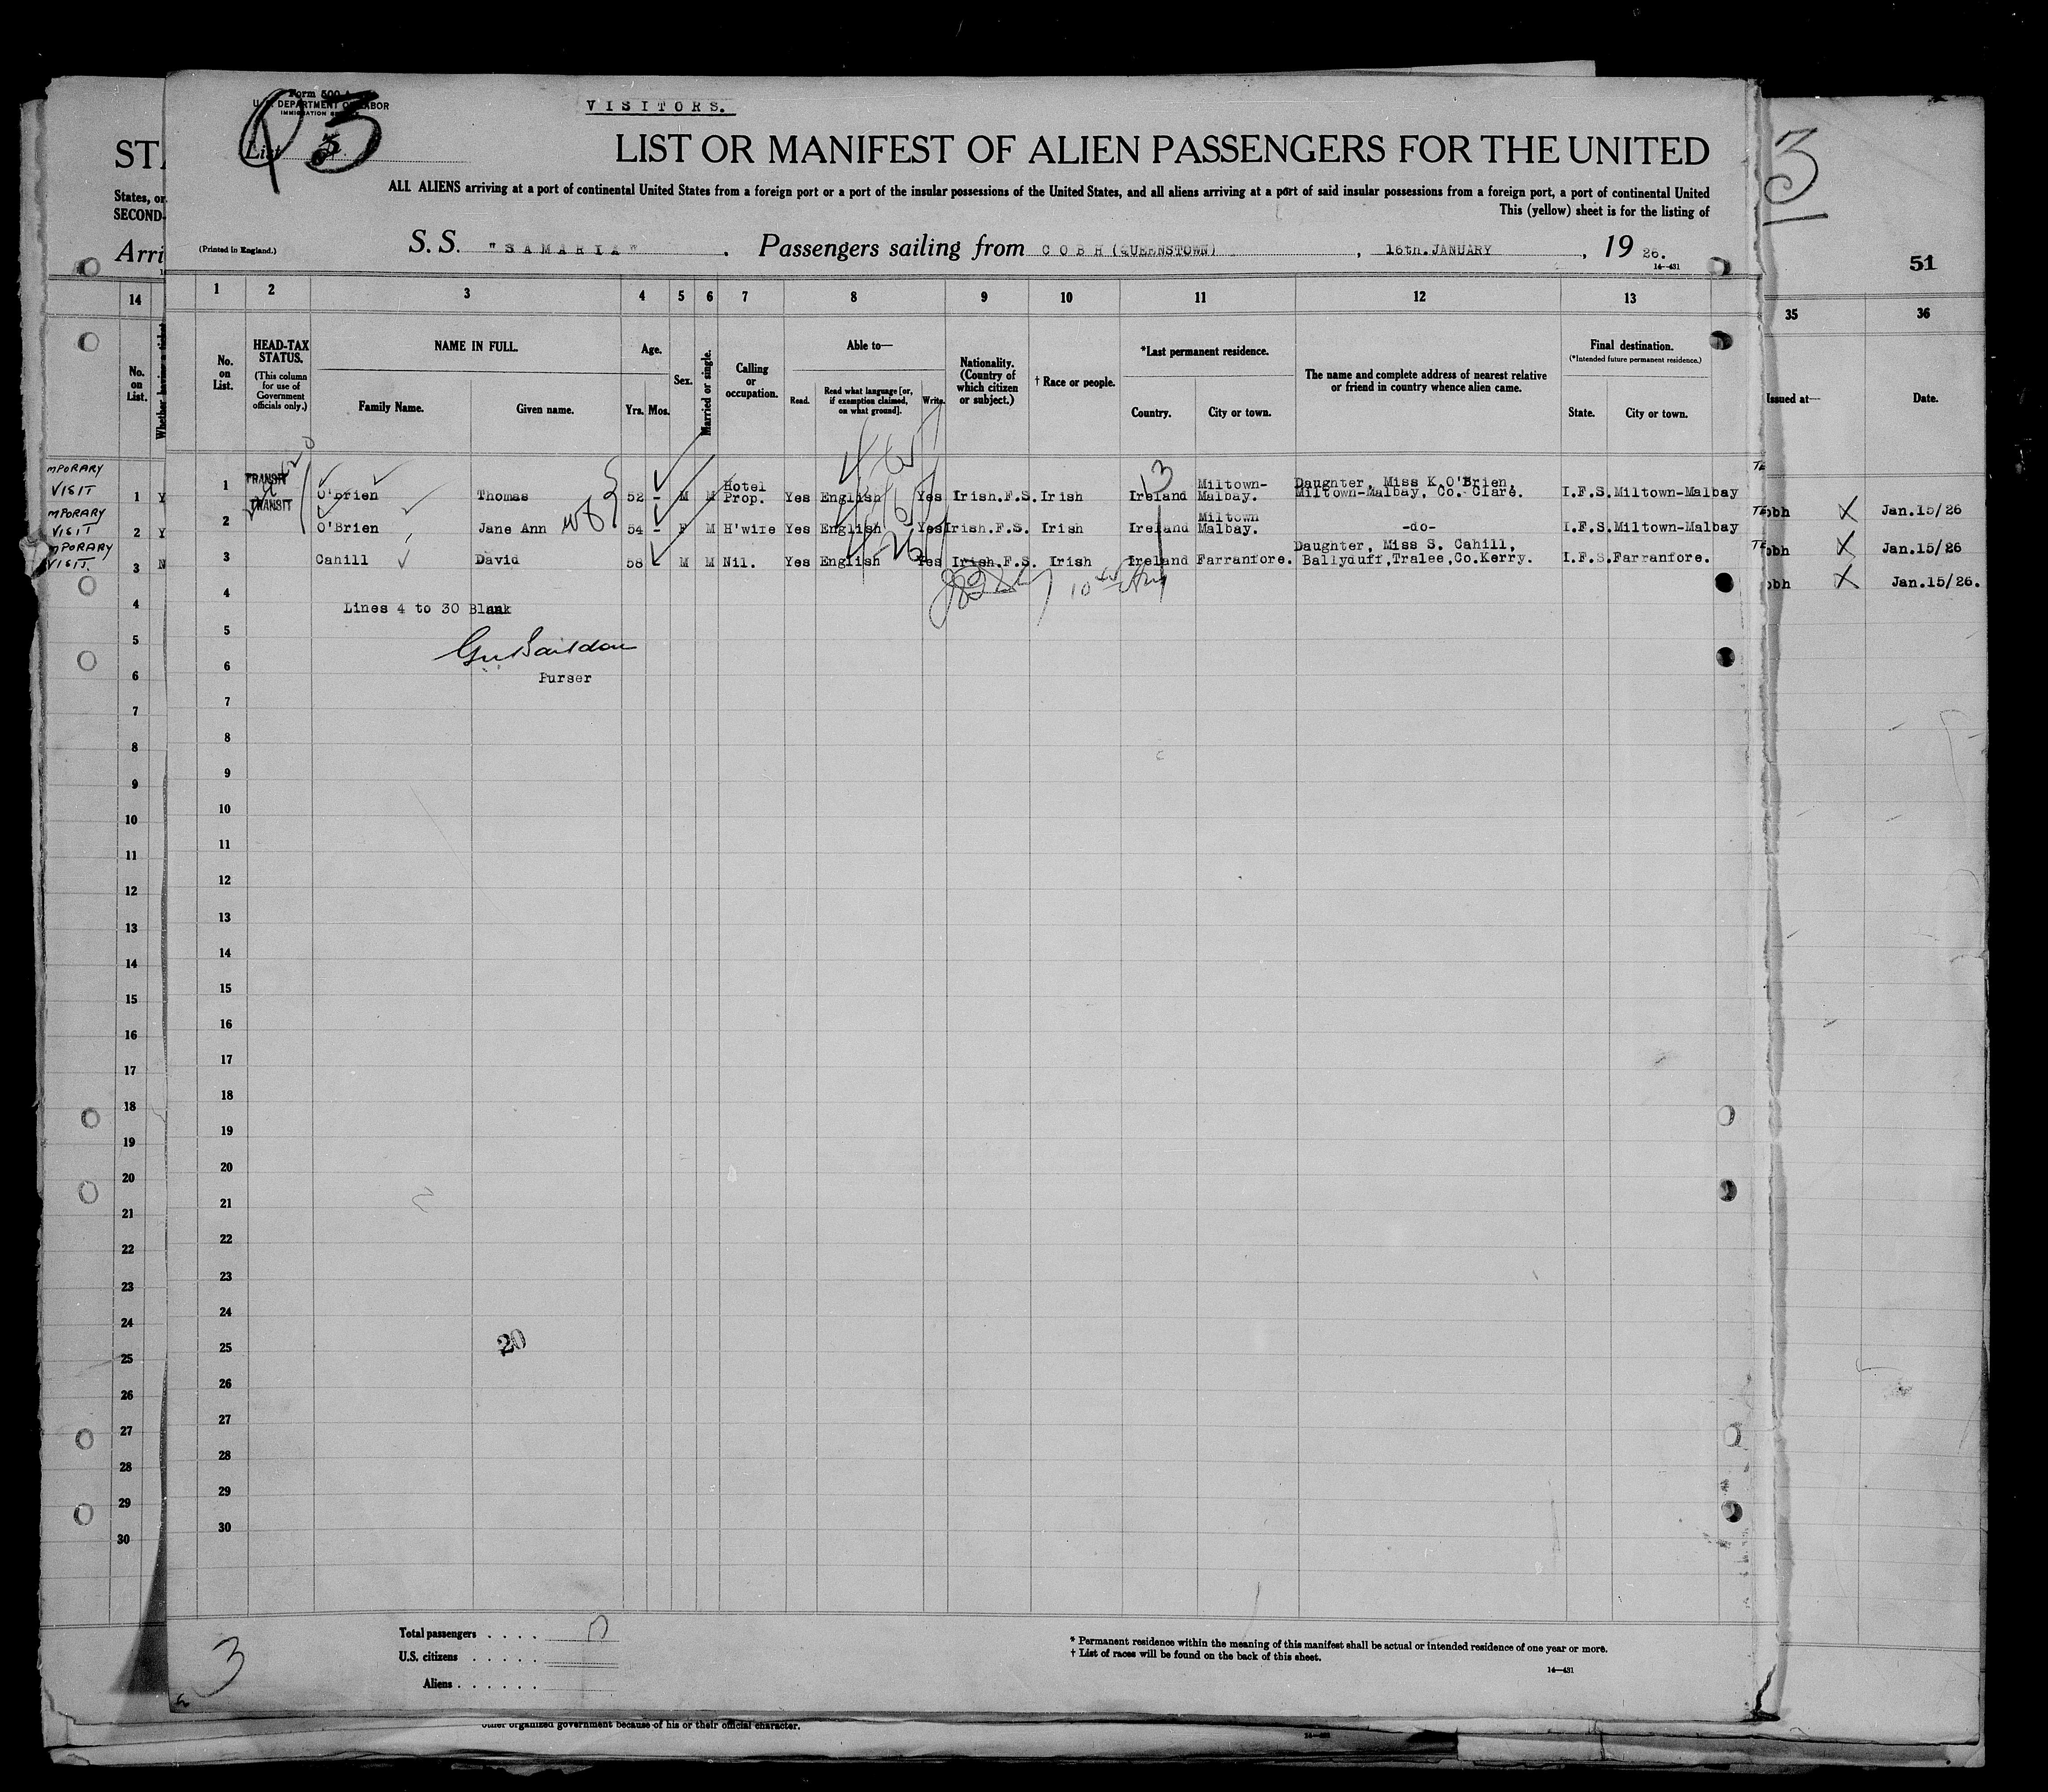 VISITORS.
Form 500 A
U. S. DEPARTMENT OF LABOR
IMMIGRATION SERVICE
List 3
LIST OR MANIFEST OF ALIEN PASSENGERS FOR THE UNITED
ALL ALIENS arriving at a port of continental United States from a foreign port or a port of the insular possessions of the United States, and all aliens arriving at a port of said insular possessions from a foreign port, a port of continental United
This (yellow) sheet is for the listing of
(Printed in England.) S. S. "SAMARIA". Passengers sailing from COBH (QUEENSTOWN), 16th. JANUARY, 1926.
14—431
1 2 3 4 5 6 7 8 9 10 11 12 13
No. on List.
HEAD-TAX STATUS. (This column for use of Government officials only.)
NAME IN FULL. Family Name. Given name.
Age. Yrs. Mos.
Sex.
Married or single.
Calling or occupation.
Able to— Read. Read what language [or, if exemption claimed, on what ground]. Write.
Nationality. (Country of which citizen or subject.)
† Race or people.
*Last permanent residence. Country. City or town.
The name and complete address of nearest relative or friend in country whence alien came.
Final destination. (*Intended future permanent residence.) State. City or town.
1 TRANSIT O'Brien Thomas 52 - M M Hotel Prop. Yes English Yes Irish.F.S. Irish Ireland Miltown-Malbay. Daughter, Miss K.O'Brien, Miltown-Malbay, Co. Clare. I.F.S. Miltown-Malbay
2 TRANSIT O'Brien Jane Ann 54 - F M H'wife Yes English Yes Irish.F.S. Irish Ireland Miltown Malbay. -do- I.F.S. Miltown-Malbay
3 Cahill David 58 M M Nil. Yes English Yes Irish.F.S. Irish Ireland Farranfore. Daughter, Miss S. Cahill, Ballyduff,Tralee,Co.Kerry. I.F.S. Farranfore.
4
Lines 4 to 30 Blank
5
6
Purser
7
8
9
10
11
12
13
14
15
16
17
18
19
20
21
22
23
24
25
20
26
27
28
29
30
Total passengers . . . .
U.S. citizens . . . . .
Aliens . . . . . .
* Permanent residence within the meaning of this manifest shall be actual or intended residence of one year or more.
† List of races will be found on the back of this sheet.
14—431
3
STA
States, or
SECOND-
Arri
14
No. on List.
Whether having a ticket
MPORARY VISIT 1 Y
MPORARY VISIT 2 Y
MPORARY VISIT. 3 N
4
5
6
7
8
9
10
11
12
13
14
15
16
17
18
19
20
21
22
23
24
25
26
27
28
29
30
3
51
35 36
Issued at— Date.
obh X Jan.15/26
obh X Jan.15/26
obh X Jan.15/26.
other organized government because of his or their official character.